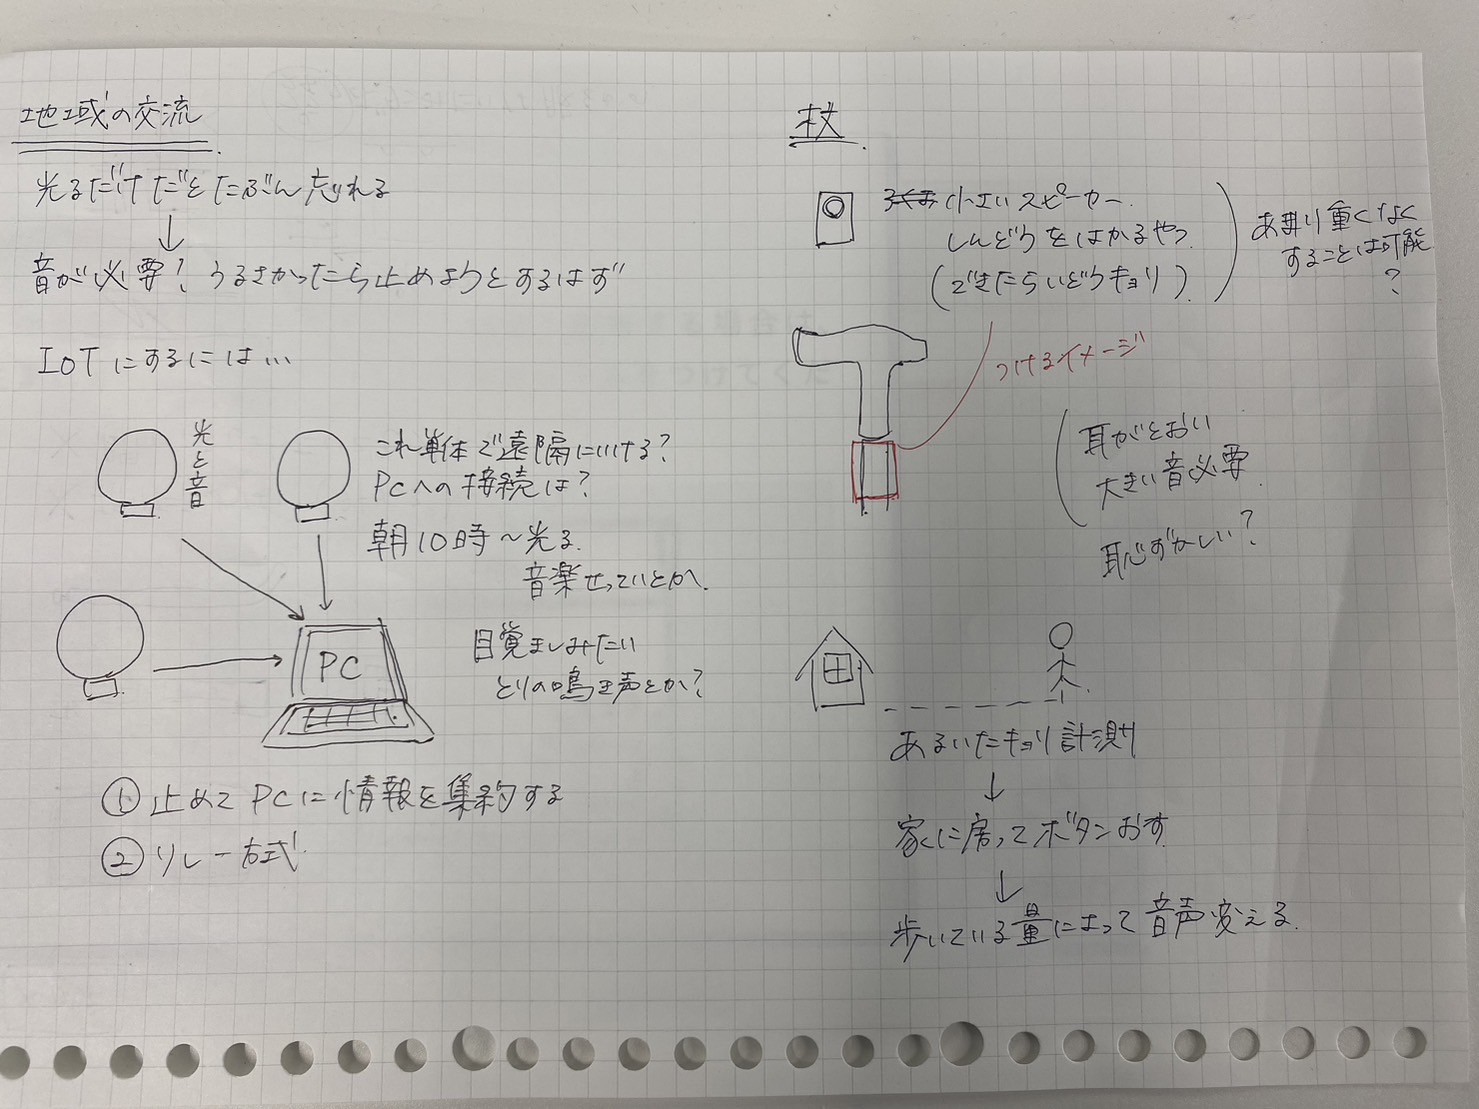 地域の交流
光るだけだとたぶん忘れる
↓
音が必要? うるさかったら止めようとするはず
IoTにするには...
光と音
これ単体で遠隔にいける?
PCへの接続は?
朝10時〜光る.
音楽せっていとか.
PC
目覚ましみたい
とりの鳴き声とか?
① 止めてPCに情報を集約する
② リレー方式.
杖
小さいスピーカー.
しんどうをはかるやつ
(できたらいどうキョリ)
あまり重くなく
することは可能
?
つけるイメージ
耳がとおい
大きい音必要.
恥ずかしい?
あるいたキョリ計測
↓
家に戻ってボタンおす.
↓
歩いている量によって音声変える.